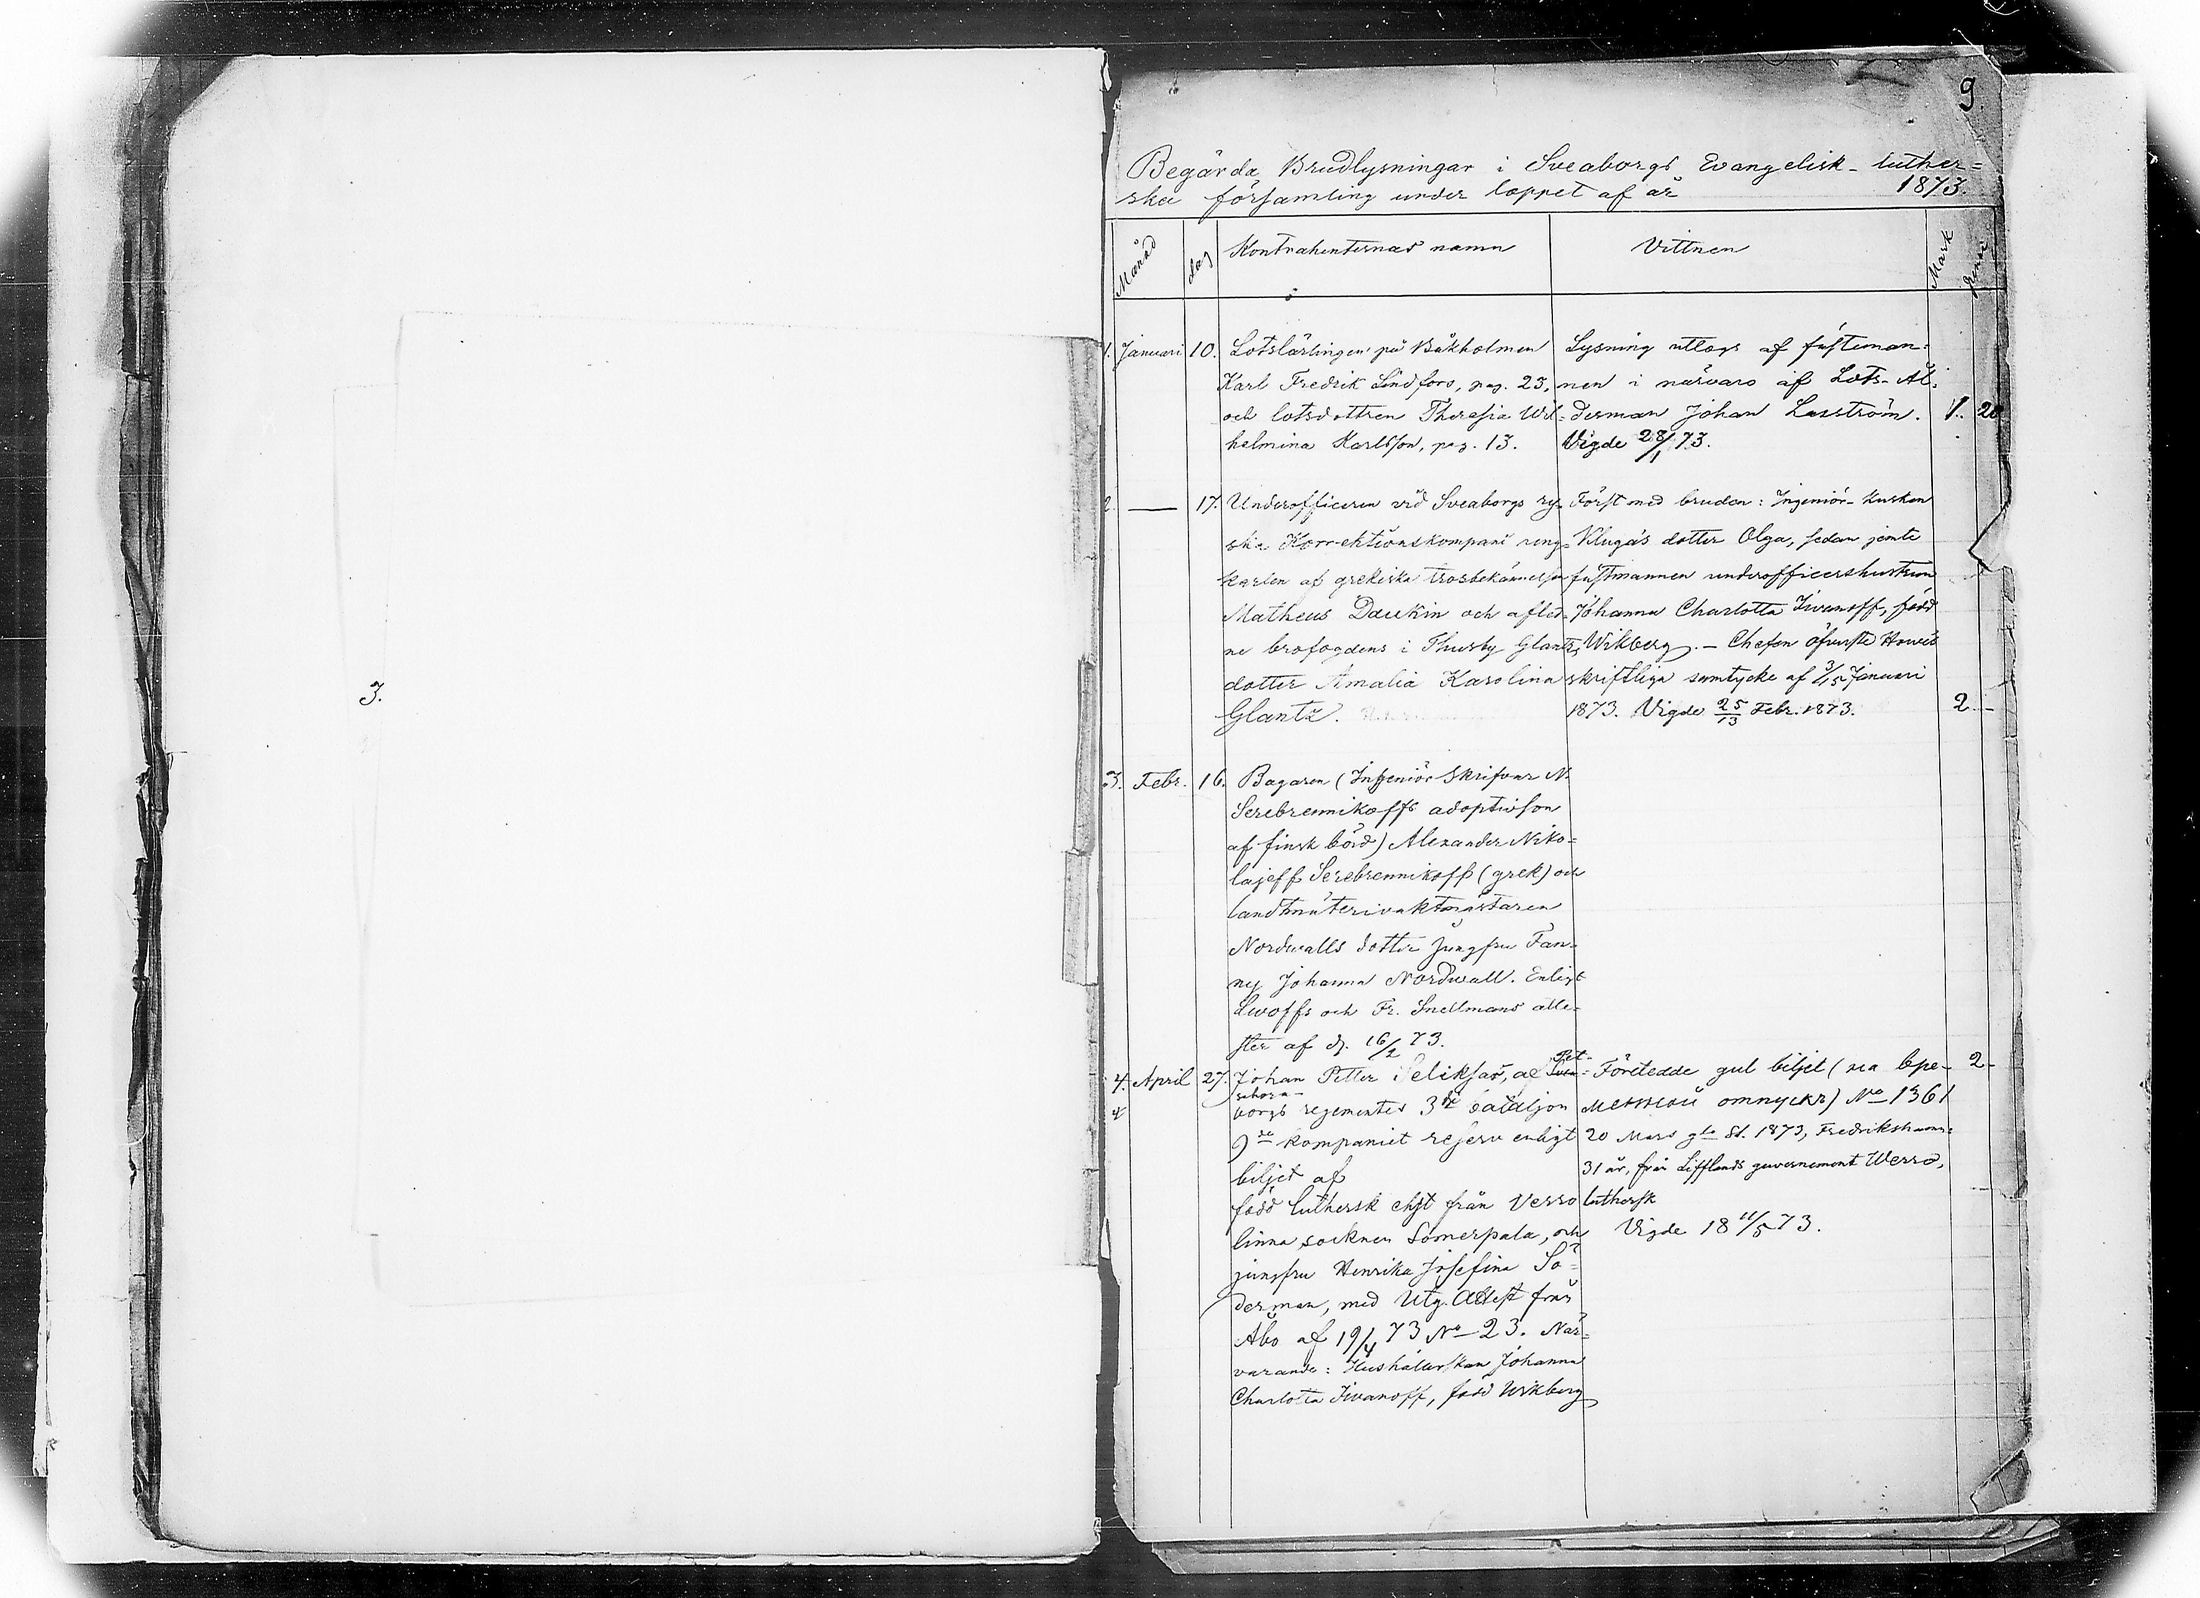 3.
9.
Begärda Brudlysningar i Sveaborgs Evangelisk-luther=
ska församling under loppet af år 1873.
Månad
dag
Kontrahenternas namn
Vittnen
Mark
penni
1. Januari 10.
Lotslärlingen på Båkholmen
Karl Fredrik Lindfors, pag. 23,
och lotsdottren Theresia Wil-
helmina Karlsson, pag. 13.
Lysning uttogs af fästeman-
nen i närvaro af Lots-Ål-
derman Johan Lasström. 1. 20
Vigde 28/1 73.
2. — 17.
Underofficeren vid Sveaborgs ry-
ska Korrektionskompani ung-
karlen af grekiska trosbekännelsen
Matheus Daukin och aflid-
ne brofogdens i Thusby Glantz
dotter Amalia Karolina
Glantz.
Först med bruden: Ingeniör-kusken
Klugas dotter Olga, sedan jemte
fästmannen underofficershustrun
Johanna Charlotta Iwanoff, född
Wikberg. — Chefen öfverste
skriftliga samtycke af 3/15 Januari
1873. Vigde 25/13 Febr. 1873. 2. —
3. Febr. 16.
Bagaren (Ingeniör Skrifvar N.
Serebrennikoffs adoptivson
af finsk börd) Alexander Niko-
lajeff Serebrennikoff (grek) och
landtmäterivaktmästaren
Nordwalls dotter jungfru Fan-
ny Johanna Nordwall. Enligt
Lwoffs och Fr. Snellmans atte-
ster af d. 16/2 73.
4. April 27.
Johan Petter af Svea-
borgs regementes 3dje bataljon
9de kompaniet reserv enligt
biljet af
född luthersk ehst från Verro
linna socknen Somerpala, och
jungfru Henrika Josefina Sö-
derman, med Utg. Attest från
Åbo af 19/4 73 No 23. När-
varande: Hushållerskan Johanna
Charlotta Iwanoff, född Wikberg
Företedde gul biljet (на вре- 2 -
отпускъ) No 1361
20 Mars gla St. 1873, Fredrikshamn
31 år, från Lifflands guvernement Werro,
luthersk
Vigde 18 11/5 73.